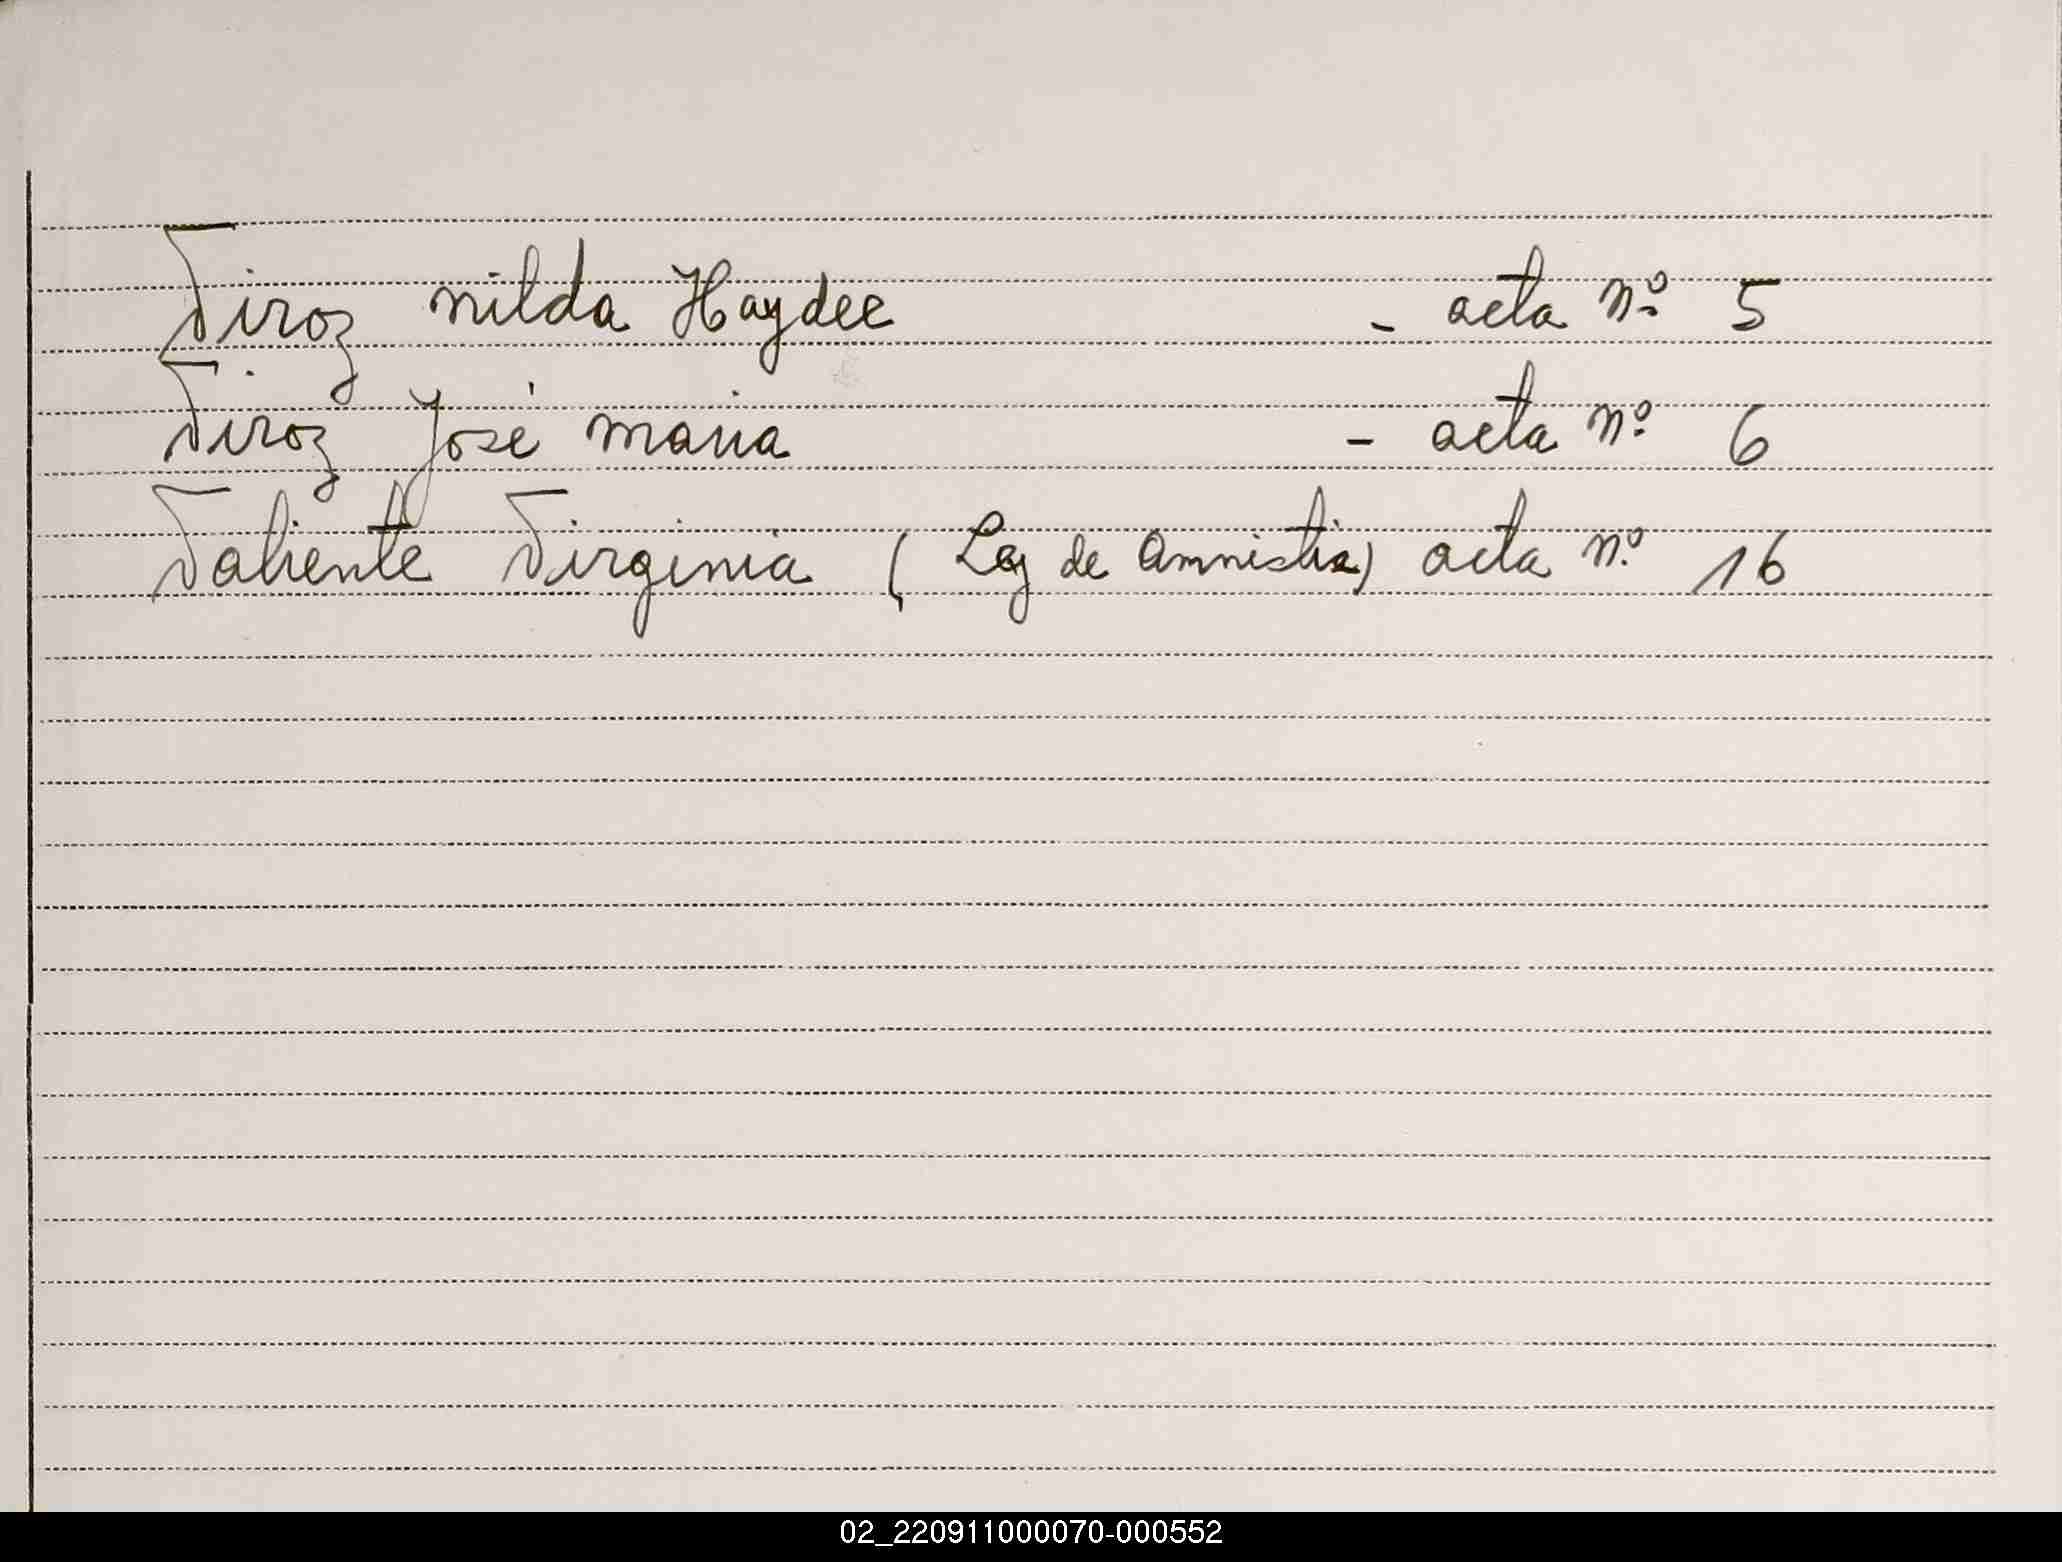 Viroz nilda Haydee - acta nº 5
Viroz José maria - acta nº 6
Valiente Virginia (Ley de Amnistia) acta nº 16
02_220911000070-000552